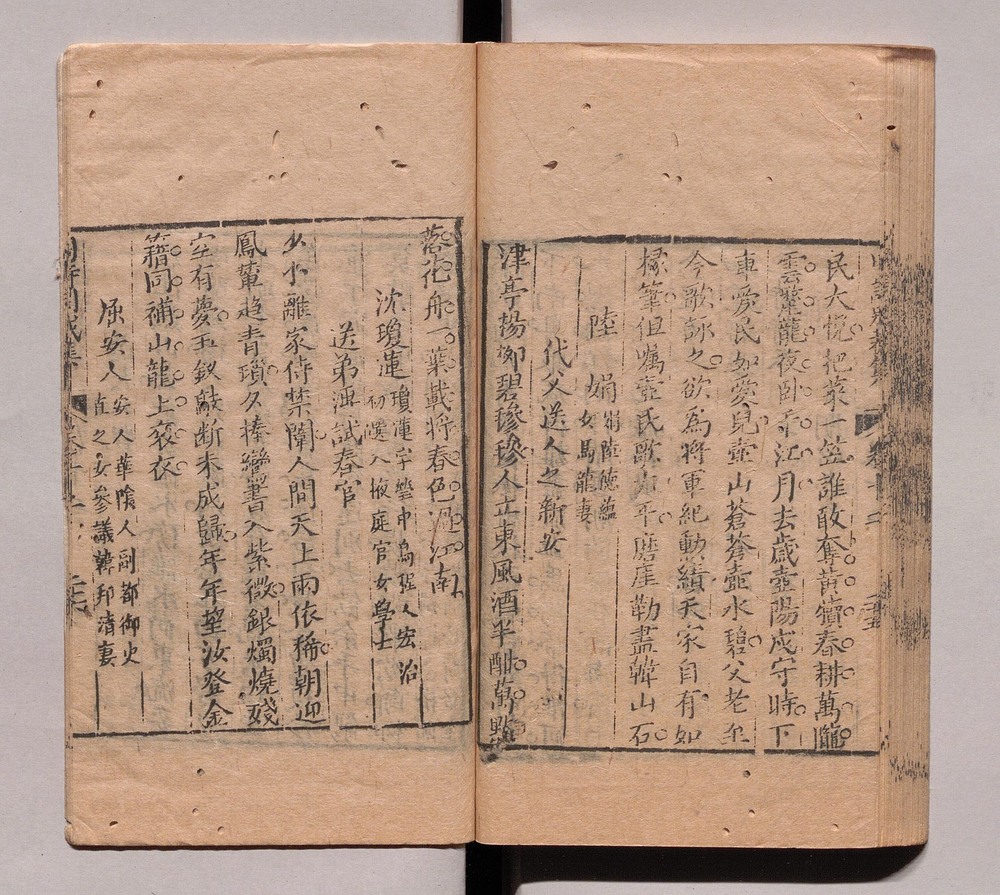 民大悅把菜一笠誰敢奪黃犢春耕萬隴
雲蒼龍夜臥千江月去歲壺陽戍守時下
車愛民如愛兒壺山蒼蒼壺水碧父老至
今歌詠之欲為將軍紀勳績天家自有如
椽筆但囑壺民歌太平磨崖勒盡韓山石
陸娟 娟陸德蘊
女馬龍妻
代父送人之新安
津亭楊柳碧毿毿人立東風酒半酣萬點
落花舟一葉載將春色過江南
沈瓊蓮 瓊蓮字瑩中烏程人宏治
初選入掖庭官女學士
送弟溥試春官
少小離家侍禁闈人間天上兩依稀朝迎
鳳輦趨青瑣夕捧鸞書入紫微銀燭燒殘
空有夢玉釵敲斷未成歸年年望汝登金
籍同補山龍上袞衣
屈安人 安人華陰人副都御史
直之女參議韓邦清妻